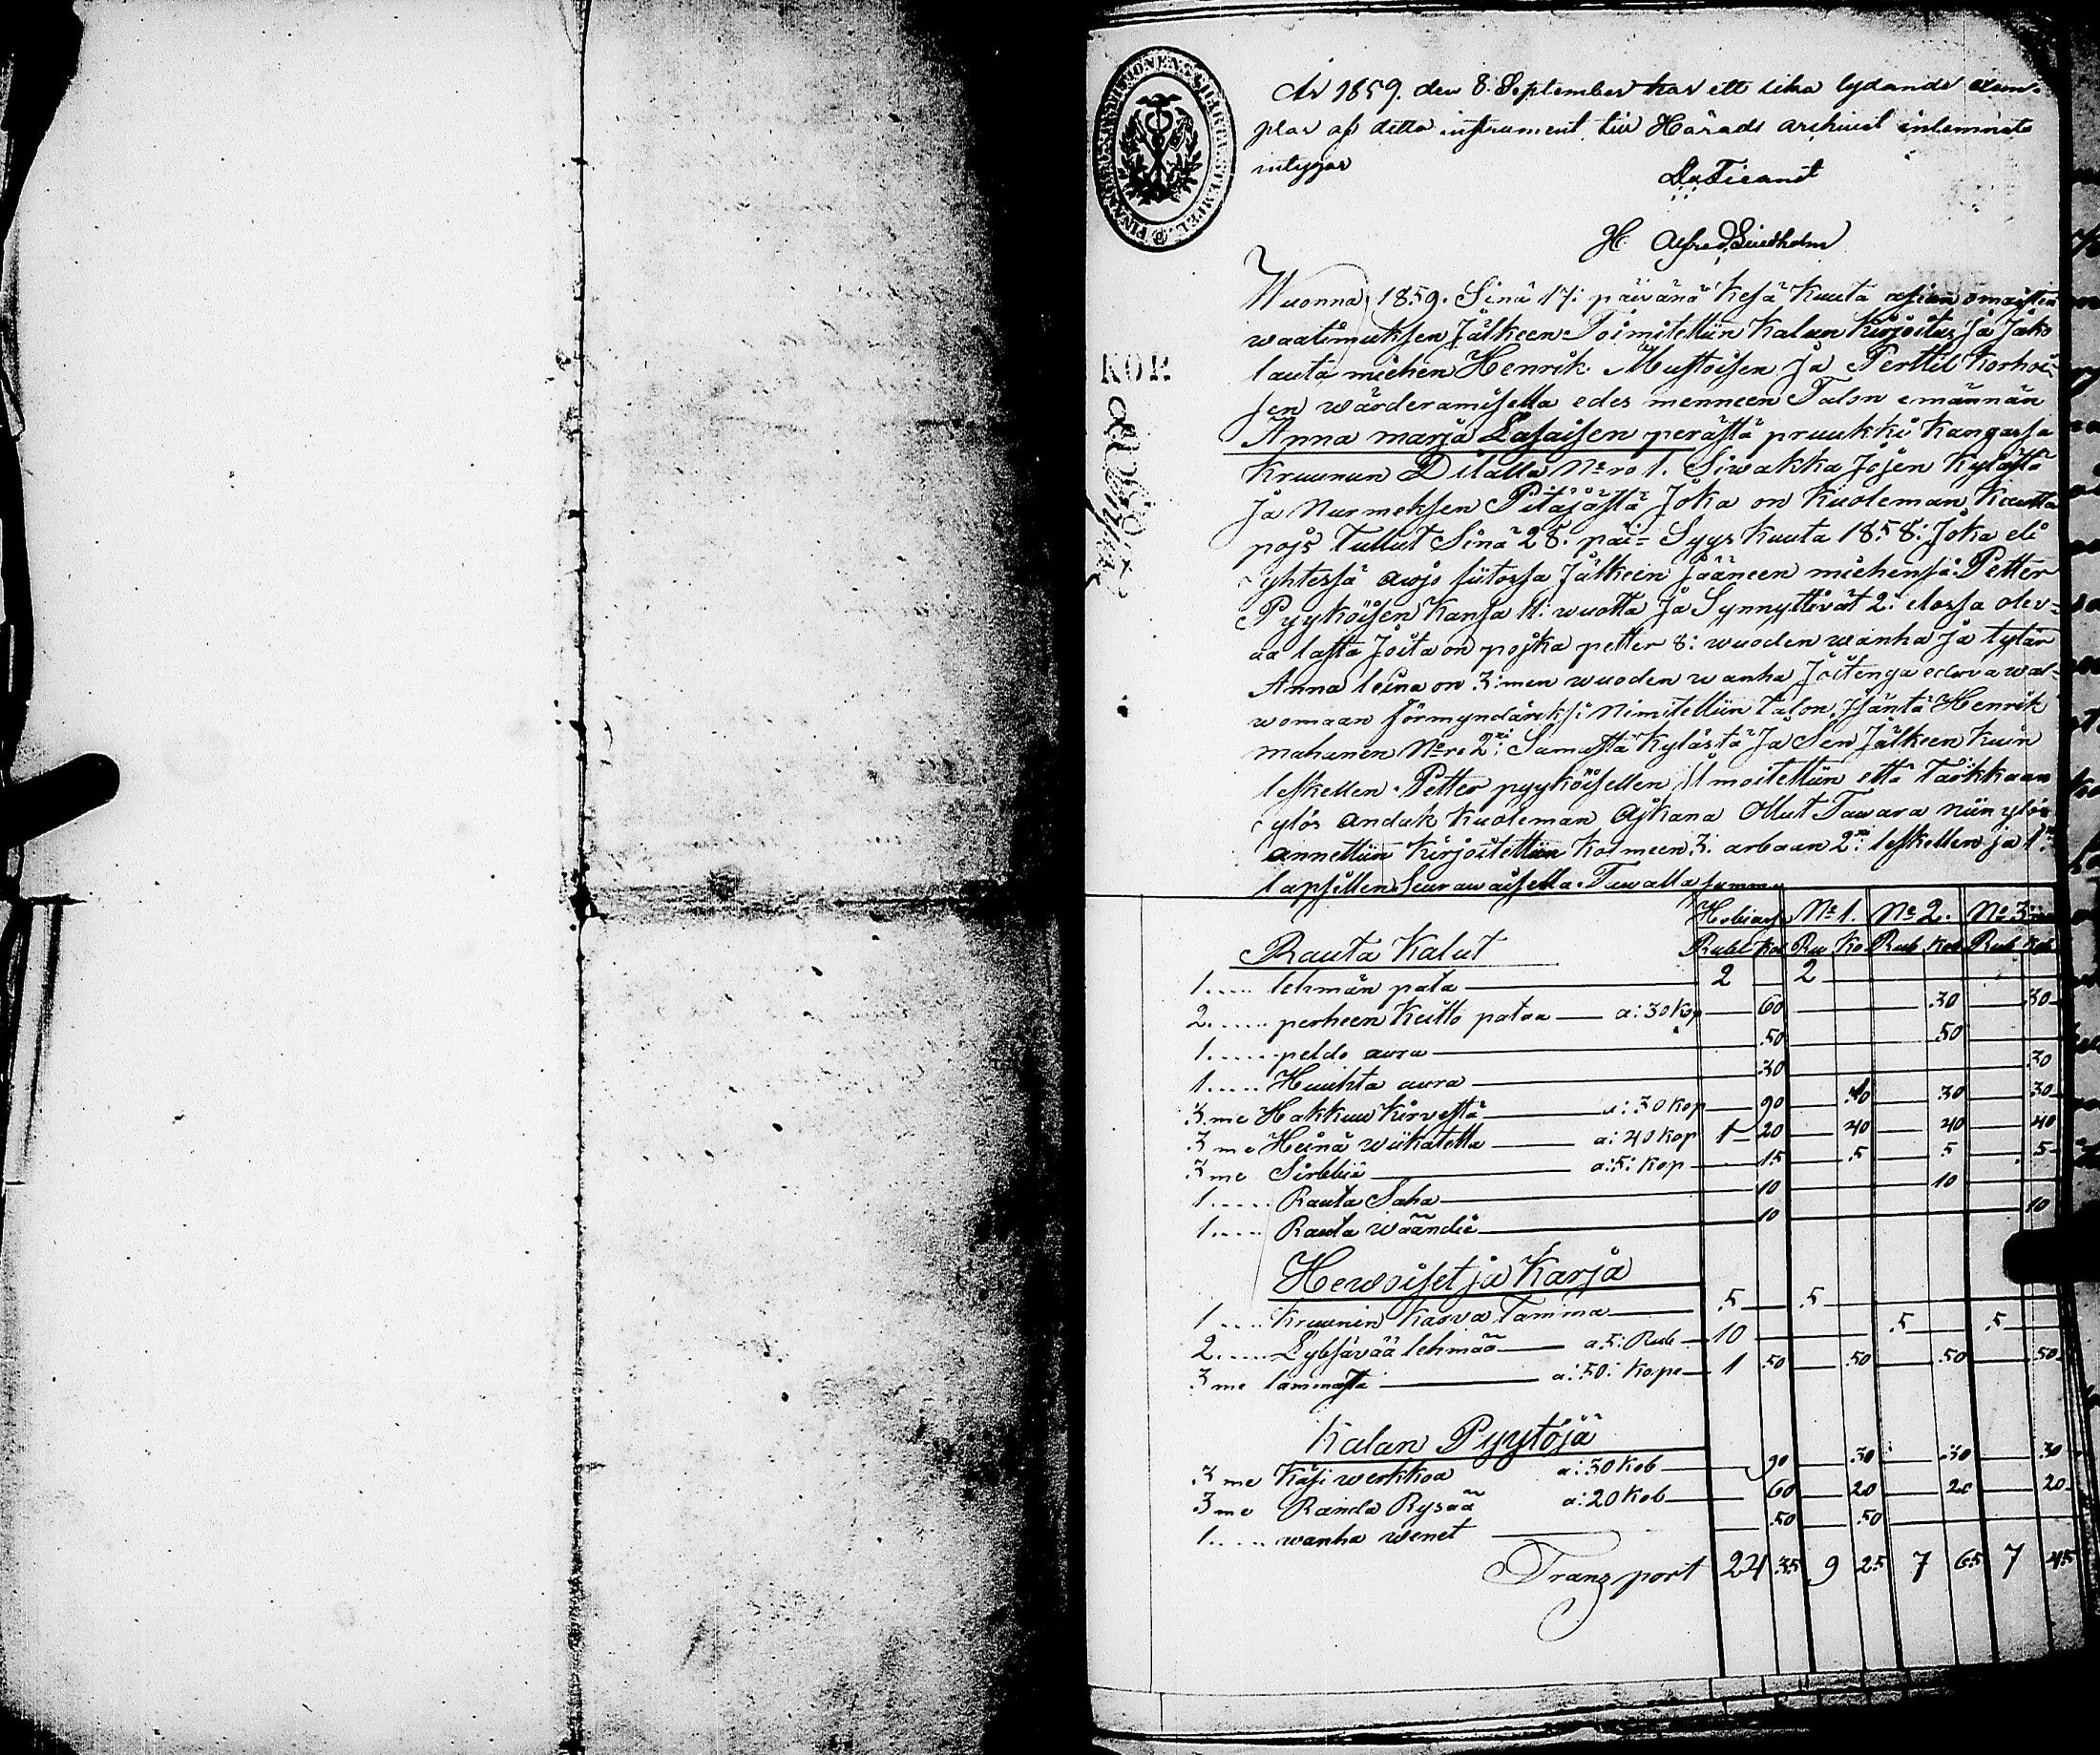 År 1859. den 8. September har ett lika lydande exem-
plar af detta instrument till Härads archivet inlemnats
intygar
Ex officio
H Alfred Lindholm
KOP
Wuonna 1859. Sinä 17: päivänä Kesä Kuuta asian omaisten
waatimuksen Jälkeen Toimitettiin Kalun Kirjoitus Ja Jako
lauta miehen Henrik Mustoisen Ja Perttil Korhoi-
sen wärderamisella edes menneen Talon emännän
Anna marja Lasaisen perästä pruukki Kangassa
Kruunun Dilalla No ro 1. Siwakka Jojen Kylästä
Ja Nurmeksen Pitäjästä Joka on Kuoleman Kautta
pojs Tullut Sinä 28. päi= Syys Kuuta 1858: Joka eli
yhtessä awjo siitossa Jälkein Jääneen miehensä Petter
Pyyköisen Kansa 11: wuotta Ja Synnyttivät 2: elossa olev=
aa lasta Joita on pojka petter 8: wuoden wanha Ja tytär
Anna leena on 3:men wuoden wanha Joitenga edova wal-
womaan förmyndäriksi Nimitettiin Talon Jsäntä Henrik
mahanen No ro 2: Samasta Kylästä Ja Sen Jälkeen Kuin
leskellen Petter pyyköisellen Ilmoitettiin että Tarkkaan
ylös andak Kuoleman Ajkana Ollut Tawara Niin ylös
annettiin Kirjoitettiin Kolmeen 3: arbaan 2: leskellen ja 1
lapsillen Seurawaisella Tawalla summa
Hobias No 1. No 2. No 3
Rauta Kalut Rubl Ko Ru Ko Rub Kob Rub Kob
1..... lehmän pata 2 2
2...... perheen Keitto pataa a: 30 Kop 60 30 30
1...... peldo aura 50 50
1..... Huuhta aura 30 30
3 me Hakkuu Kirvestä a: 30 Kop 90 30 30
3 me Heinä wiikatetta a: 40 Kop 1 20 40 40 40
3 me Sirbbiä a: 5: Kop 15 5 5 5
1..... Rauta Saha 10 10
1..... Rauta wäändiä 10 10
Hewoiset ja Karja
1.... Kruunin Karva Tamma 5 5
2..... Lybsävää lehmää a. 5: Rub 10 5 5
3 me lammasta a: 50: Kope 1 50 50 50 50
Kalan Pyytöjä
3 me Käsi werkkoa a: 30 Kob 90 30 30 30
3 me Randa Rysää a: 20 Kob 60 20 20 20
1..... wanha wenet 50 50
Transport 24 35 9 25 7 65 7 45